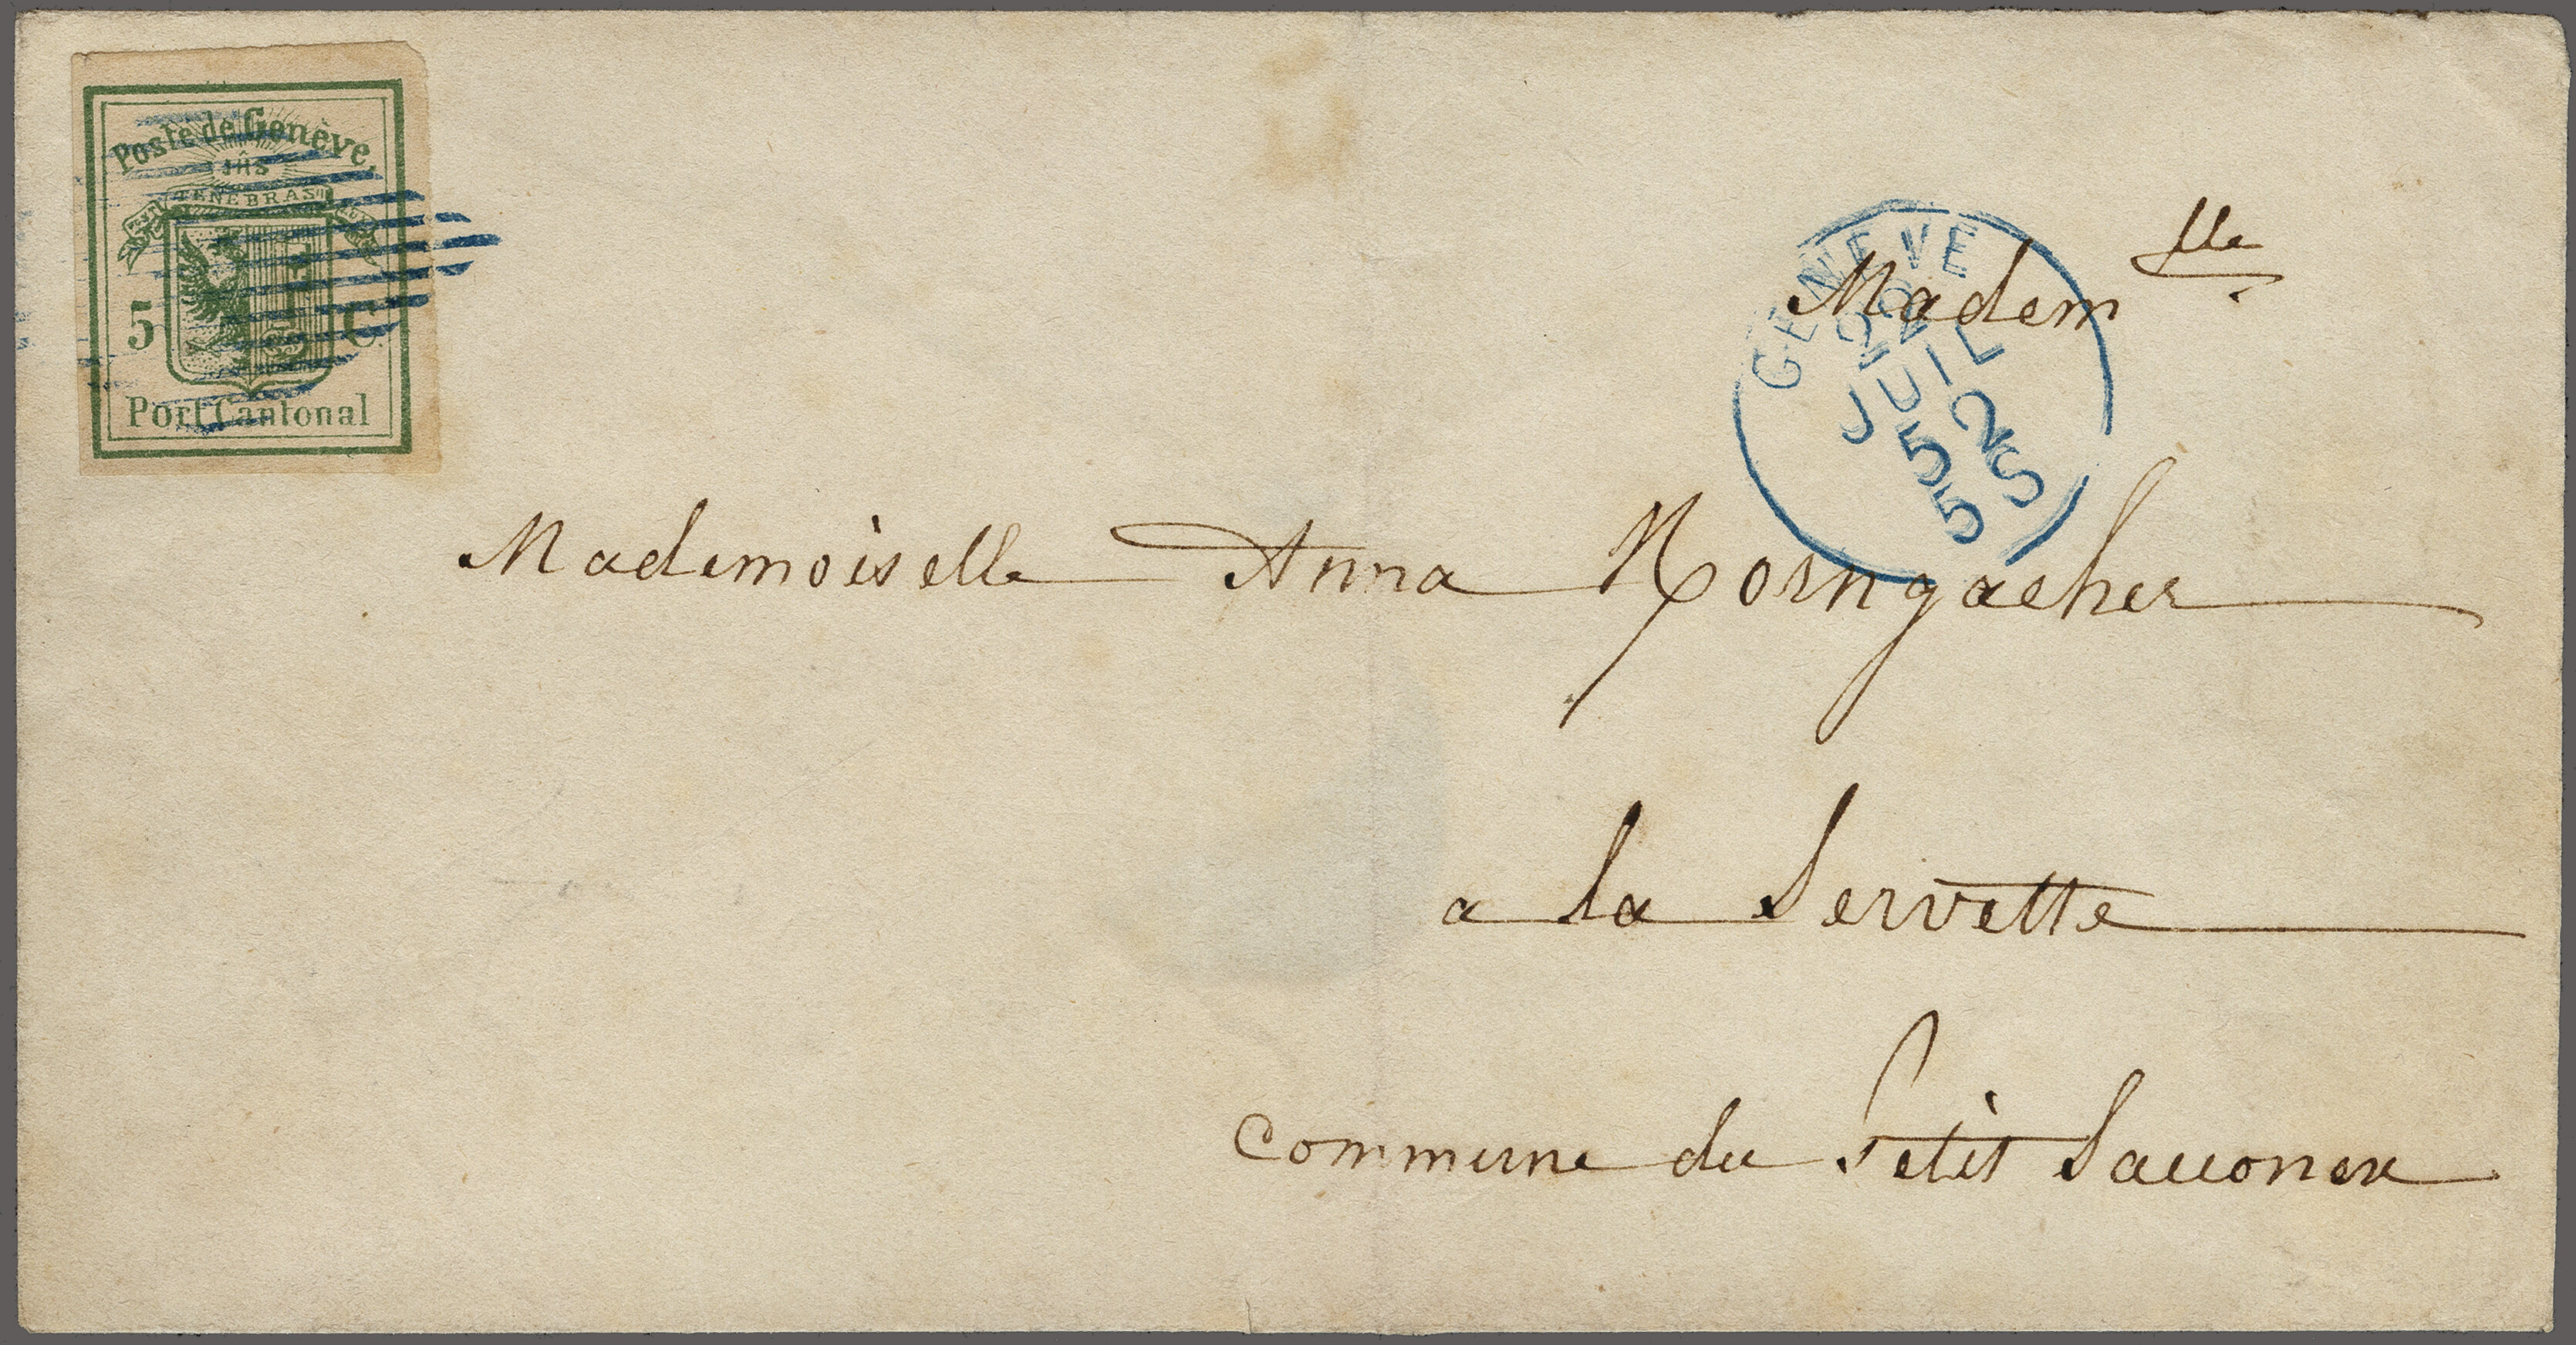 Poste de Genève.
JHS
POST TENEBRAS LUX
5 C.
Port Cantonal
GENEVE
22
JUIL
52
5 S
Madem lle
Mademoiselle Anna
a la Servette
commune du Petit Saconex